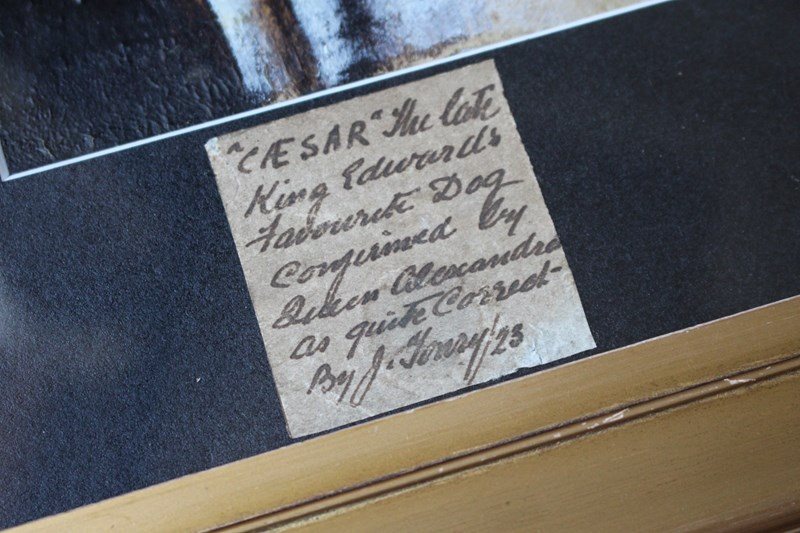 "CÆSAR" The late
King Edwards
Favourite Dog
Confirmed by
Queen Alexandra
as quite Correct-
By J. 23